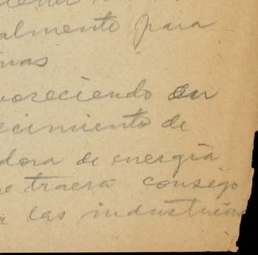 almente para
nas
voreciendo en
ecimiento de
dora de energía
e traera consigo
las industrias